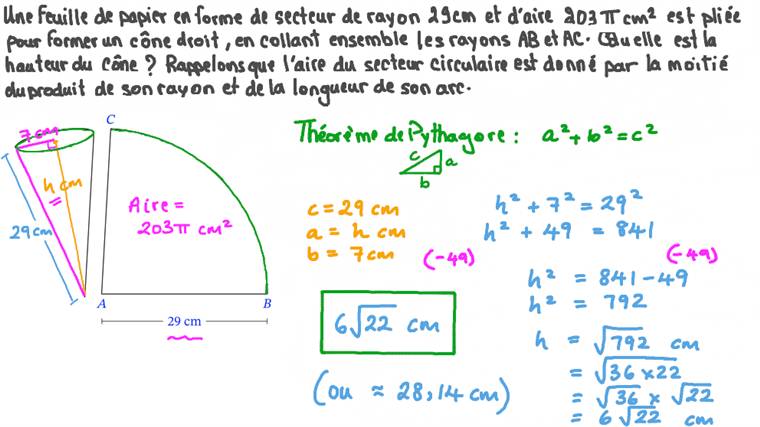 Une feuille de papier en forme de secteur de rayon 29cm et d'aire 203π cm² est pliée
pour former un cône droit, en collant ensemble les rayons AB et AC. Quelle est la
hauteur du cône ? Rappelons que l'aire du secteur circulaire est donné par la moitié
du produit de son rayon et de la longueur de son arc.
7 cm
h cm
29 cm
C
Aire =
203π cm²
A
B
29 cm
Théorème de Pythagore : a² + b² = c²
c
a
b
c = 29 cm
a = h cm
b = 7 cm
h² + 7² = 29²
h² + 49 = 841
(-49)
(-49)
h² = 841 - 49
h² = 792
h = √792 cm
= √36 × 22
= √36 × √22
= 6√22 cm
6√22 cm
(ou ≈ 28,14 cm)